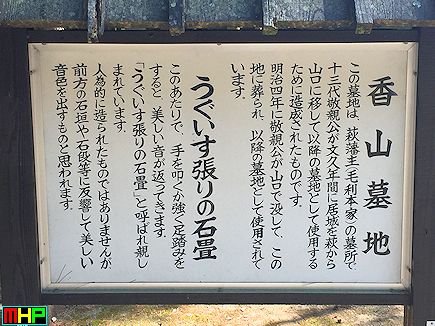 香山墓地
この墓地は、萩藩主(毛利本家)の墓所で
十三代敬親公が文久年間に居城を萩から
山口に移して以降の墓地として使用する
ために造成されたものです。
明治四年に敬親公が山口で没して、この
地に葬られ、以降の墓地として使用されて
います。
うぐいす張りの石畳
このあたりで、手を叩くか強く足踏みを
すると、美しい音が返ってきます。
「うぐいす張りの石畳」と呼ばれ親し
まれています。
人為的に造られたものではありませんが、
前方の石垣や石段等に反響して美しい
音色を出すものと思われます。
MHP